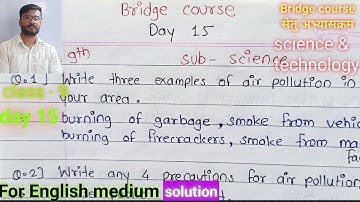 Bridge course
Day 15
9th
sub - science
Q.1] Write three examples of air pollution in
your area.
burning of garbage, smoke from vehic
burning of firecrackers, smoke from ma
fa
Q.2] Write any 4 precautions for air pollution
Bridge course
सेतु अभ्यासक्रम
science &
technology
class - 9
day 15
For English medium solution